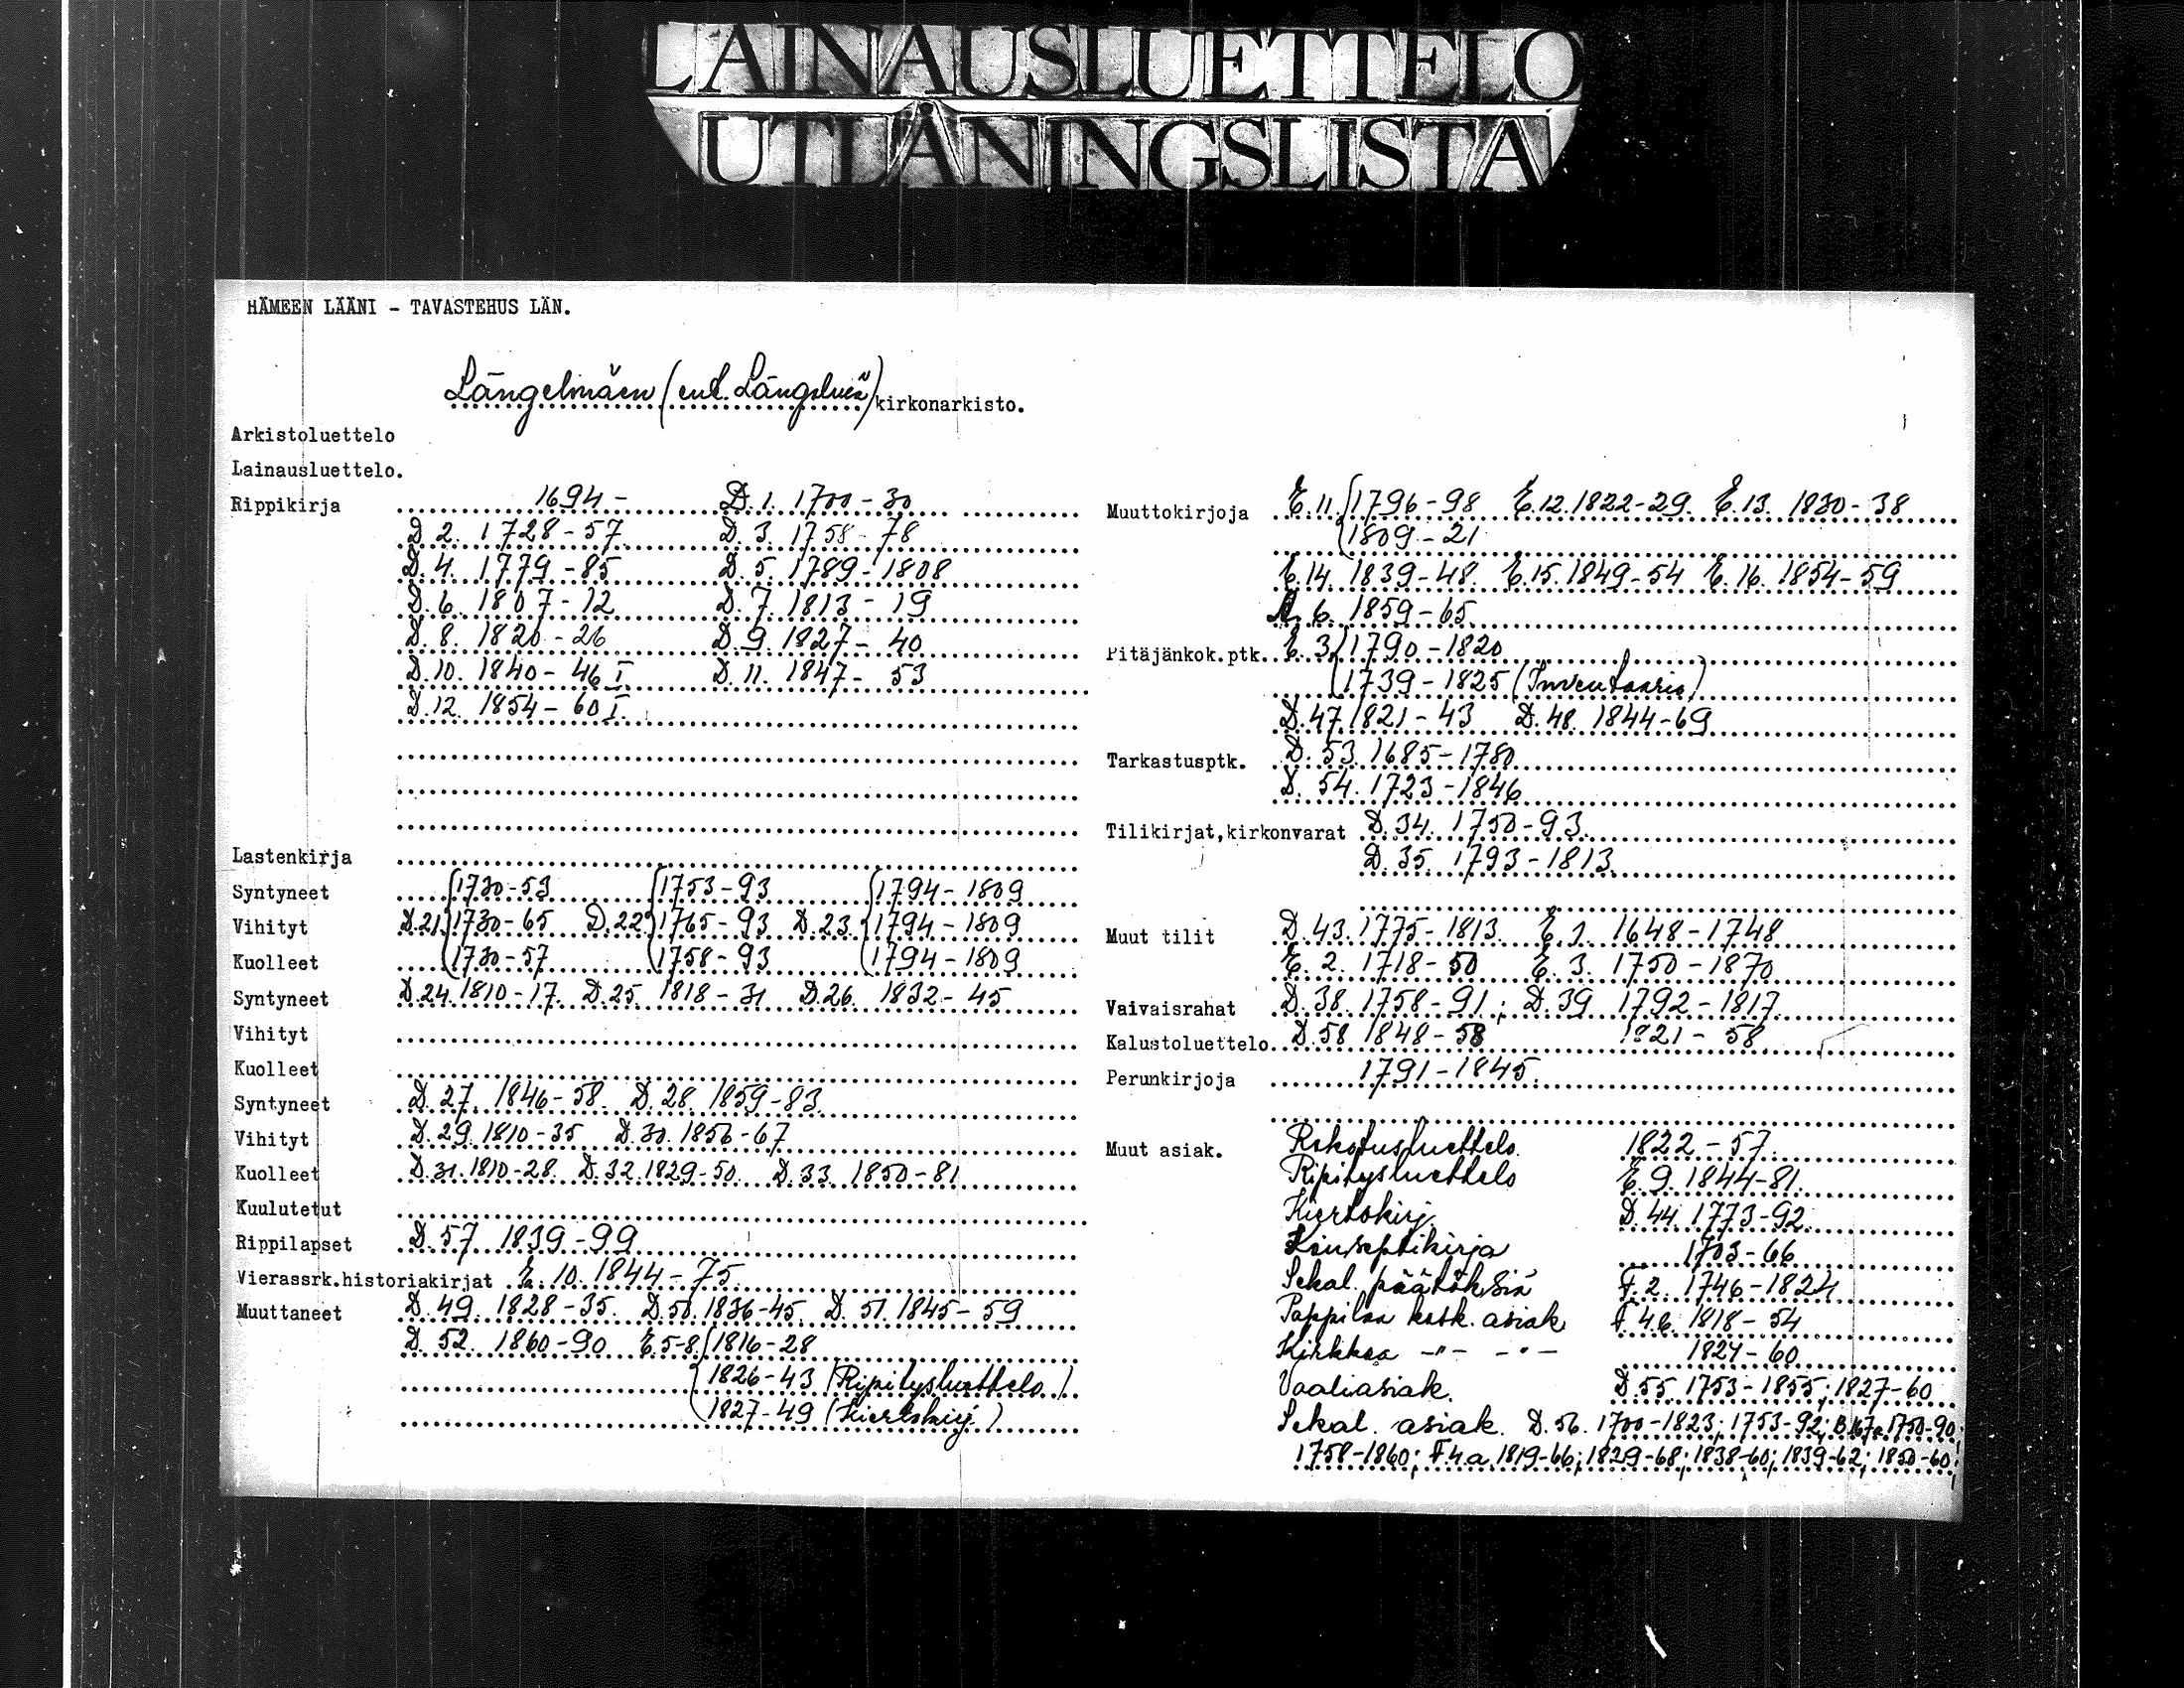 LAINAUSLUETTELO
UTLÅNINGSLISTA
HÄMEEN LÄÄNI - TAVASTEHUS LÄN.
Längelmäen (ent. Längelmä) kirkonarkisto.
Arkistoluettelo
Lainausluettelo.
Rippikirja 1694- D.1. 1700-30
D 2. 1728-57 D. 3. 1758-78
D.4. 1779-85 D.5. 1789-1808
D.6. 1807-12 D.7. 1813-19
D.8. 1820-26 D.9. 1827-40
D.10. 1840-46 I. D.11. 1847-53
D.12. 1854-60 I.
Lastenkirja
Syntyneet 1730-53 1753-93 1794-1809
Vihityt D.21. 1730-65 D.22. 1765-93 D.23. 1794-1809
Kuolleet 1730-57 1758-93 1794-1809
Syntyneet D.24. 1810-17. D.25. 1818-31 D.26. 1832-45
Vihityt
Kuolleet
Syntyneet D.27. 1846-58. D.28. 1859-83.
Vihityt D.29. 1810-35 D.30. 1856-67
Kuolleet D.31. 1810-28. D.32. 1829-50. D.33. 1850-81
Kuulutetut
Rippilapset D.57. 1839-99
Vierassrk.historiakirjat E.10. 1844-75.
Muuttaneet D.49. 1828-35. D.50. 1836-45. D.51. 1845-59
D.52. 1860-90 E.5-8. 1816-28
1826-43 (Ripitysluettelo.)
1827-49 (Kiertokirj.)
Muuttokirjoja E.11. 1796-98 E.12. 1822-29. E.13. 1830-38
1809-21
E.14. 1839-48. E.15. 1849-54 E.16. 1854-59
6. 1859-65.
Pitäjänkok.ptk. E.3. 1790-1820
1739-1825 (Inventaario)
D.47. 1821-43 D.48. 1844-69
Tarkastusptk. D.53. 1685-1780
D.54. 1723-1846
Tilikirjat,kirkonvarat D.34. 1750-93.
D.35. 1793-1813.
Muut tilit D.43. 1775-1813. E.1. 1648-1748
E.2. 1718-50 E.3. 1750-1870
Vaivaisrahat D.38. 1758-91.; D.39 1792-1817
Kalustoluettelo D.58 1848-58 1821-58
Perunkirjoja 1791-1845.
Muut asiak. Rokotusluettelo. 1822-57.
Ripitysluettelo E.9. 1844-81.
Kiertokirj. D.44. 1773-92.
Konseptikirja 1703-66
Sekal. päätöksiä F.2. 1746-1824
Pappilaa kosk. asiak F 4.b. 1818-54
Kirkkoa -"- -"- 1824-60
Vaaliasiak. D.55. 1753-1855; 1827-60
Sekal. asiak. D.56. 1700-1823; 1753-92; 1750-90;
1758-1860; F.4.a. 1819-66; 1829-68; 1838-60; 1839-62; 1850-60;